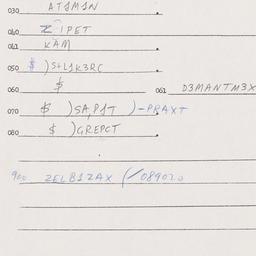 030 ATSMSN
040 Z IPET
041 KAM
050 $ )S+L1K3RC
060 $ 061 D3MANTM3X
070 $ )SA,PST )-PRAXT
080 $ )GREPCT
900 ZELB1ZAX (/08907.0